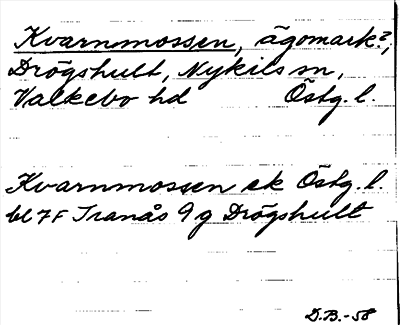 Kvarnmossen, ägomark?,
Drögshult, Nykils sn,
Valkebo hd Östg. l.
Kvarnmossen ek Östg. l.
bl 7F Tranås 9 g Drögshult
D.B.-58